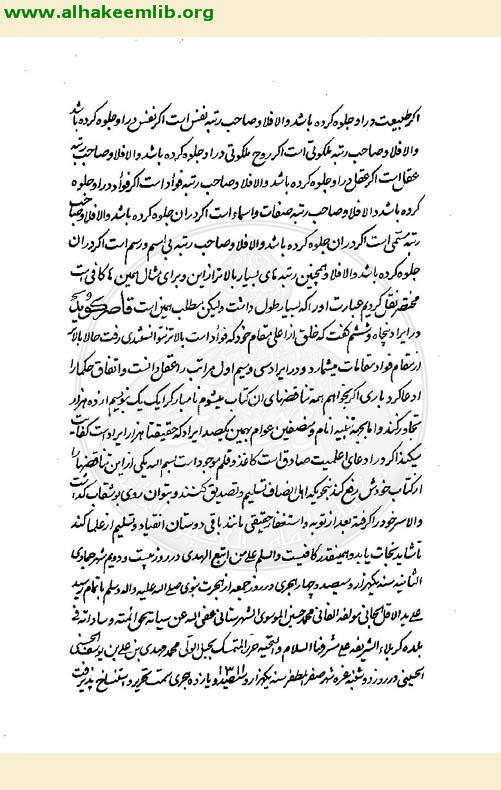 www.alhakeemlib.org
اکر طبیعت در او جلوه کرده باشد والا فلا و صاحب رتبه نفس است اکر نفس در او جلوه کرده باشد
والا فلا و صاحب رتبه ملکوتی است اکر روح ملکوتی در او جلوه کرده باشد والا فلا و صاحب رتبه
عقل است اکر عقل در او جلوه کرده باشد والا فلا و صاحب رتبه فواد است اکر فواد در او جلوه
کرده باشد والا فلا و صاحب رتبه صفات و اسماء است اکر در ان جلوه کرده باشد والا فلا و صاحب
رتبه مسمی است اکر در ان جلوه کرده باشد والا فلا و صاحب رتبه بی اسم و رسم است اکر در ان
جلوه کرده باشد والا فلا و همچنین رتبه های بسیار بالاتر از این و برای مثال همین ها کافی است
مختصر نقل کردیم عبارت او را که بسیار طول داشت ولیکن مطلب همین است قاصر کوید که
در ایراد پنجاه و ششم کفت که خلق از اعلی مقام خود که فواد است بالاتر نتوانند شدی رفت حالا بالاتر
از مقام فواد مقامات میشمارد و در ایراد سی و سیم اول مراتب را عقل دانست و اتفاق حکما را
ادعا کرد باری اکر بخواهم همه تناقضهای ان کتاب میشوم نامبارک را یک یک بنویسم از ده هزار
تجاوز کند و اما بجهة تنبیه انام و منصفین عوام بهمین یکصد ایراد که حقیقتا هزار ایراد است کفایت
میکند اکر در ادعای اعلمیت صادق است کاغذ و قلم موجود است بسم الله یکی از این تناقضها را
از کتاب خودش رفع کند بنحویکه اهل انصاف تسلیم و تصدیق کنند و بتوان روی او شعاب کذاشت
والا سر خود را کرفته بعد از توبه و استغفار حقیقی مانند باقی دوستان انقیاد و تسلیم از علما کند
تا شاید نجات یابد و همینقدر کافیست والسلم علی من اتبع الهدی در روز بیست و دویم شهر جمادی
الثانیه سنه یکهزار و سیصد و چهار هجری در روز جمعه از هجرت نبوی صلی الله علیه واله وسلم باتمام رسید
علی ید الاقل الجانی مولفه الفانی محمد حسین الموسوی الشهرستانی عفی الله عن سیئاته بحق ائمته و ساداته فی
بلده کربلاء الشریفه علی مشرفها السلام والتحیه حرره المتمسک بحبل الولی محمد مهدی بن علی بن یوسف الحسنی
الحسینی در روز دوشنبه غره شهر صفر المظفر سنه یکهزار و سیصد و یازده هجری ۱۳۱۱ سمت تحریر و استنساخ پذیرفت